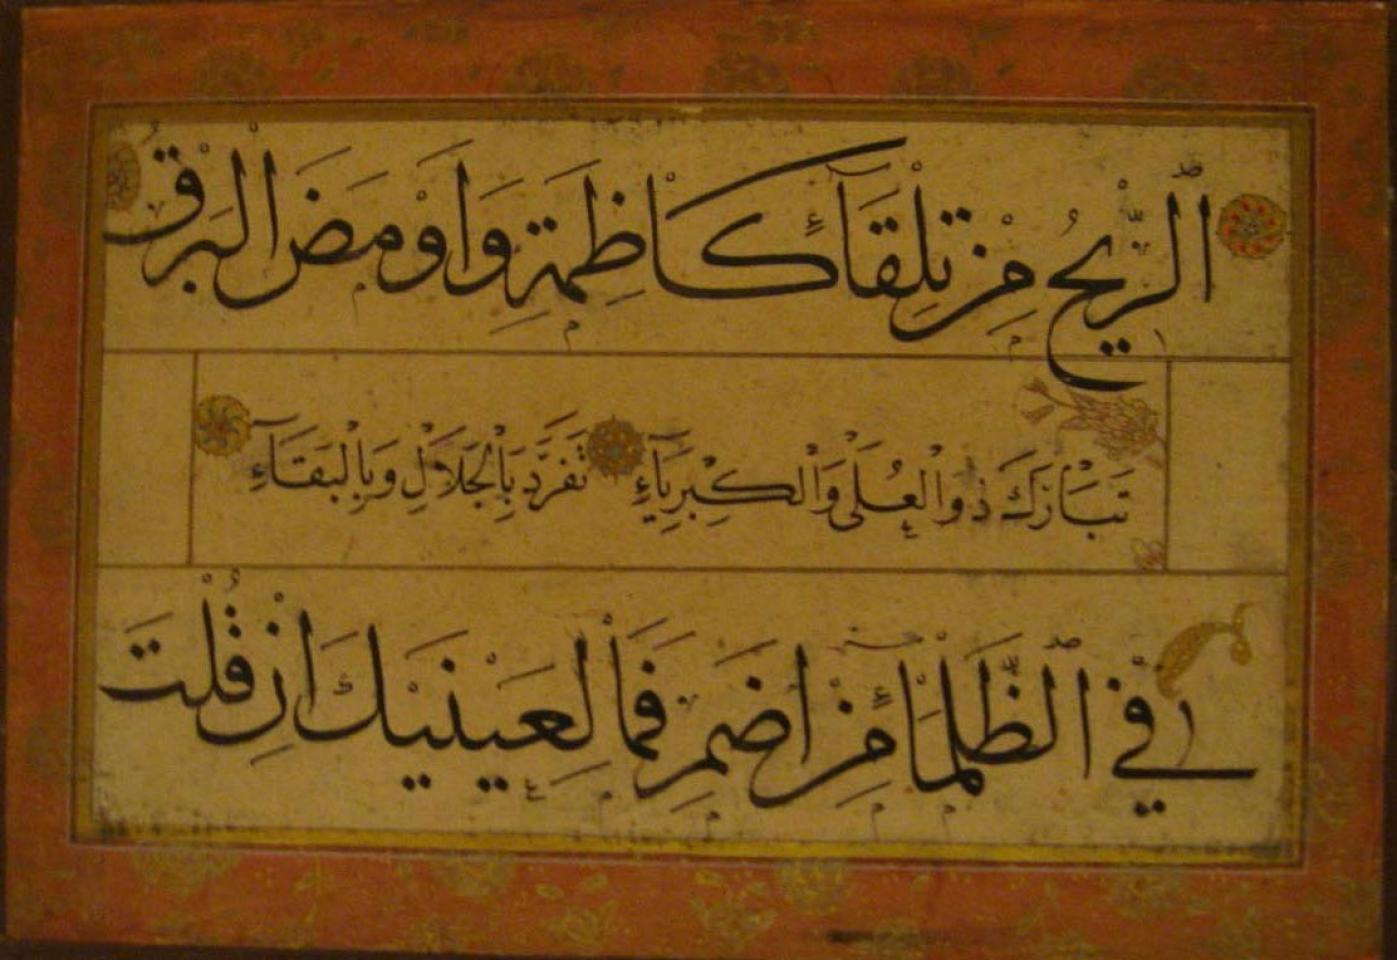 اَلرِّيحُ مِنْ تِلْقَآءِ كَاظِمَةٍ وَاَوْمَضَ الْبَرْقُ
تَبَارَكَ ذُو الْعُلَى وَالْكِبْرِيَآءِ تَفَرَّدَ بِالْجَلَالِ وَبِالْبَقَآءِ
فِي الظَّلْمَآءِ مِنْ اِضَمِ فَمَا لِعَيْنَيْكَ اِنْ قُلْتَ